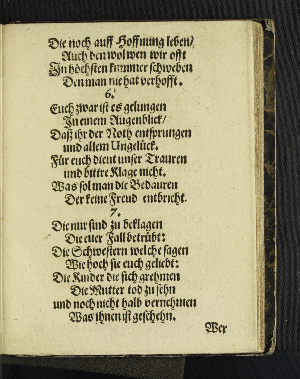 Die noch auff Hoffnung leben/
Auch den wol wen wir offt
In höchsten kummer schweben
Den man nie hat verhofft.
6.
Euch zwar ist es gelungen
In einem Augenblick/
Daß ihr der Noth entsprungen
und allem Ungelück.
Für euch dient unser Trauren
und bittre Klage nicht.
Was sol man die Bedauren
Der keine Freud entbricht.
7.
Die nur sind zu beklagen
Die euer Fall betrübt:
Die Schwestern welche sagen
Wie hoch sie euch geliebt:
Die Kinder die sich grehmen
Die Mutter tod zu sehn
und noch nicht halb vernehmen
Was ihnen ist geschehn.
Wer